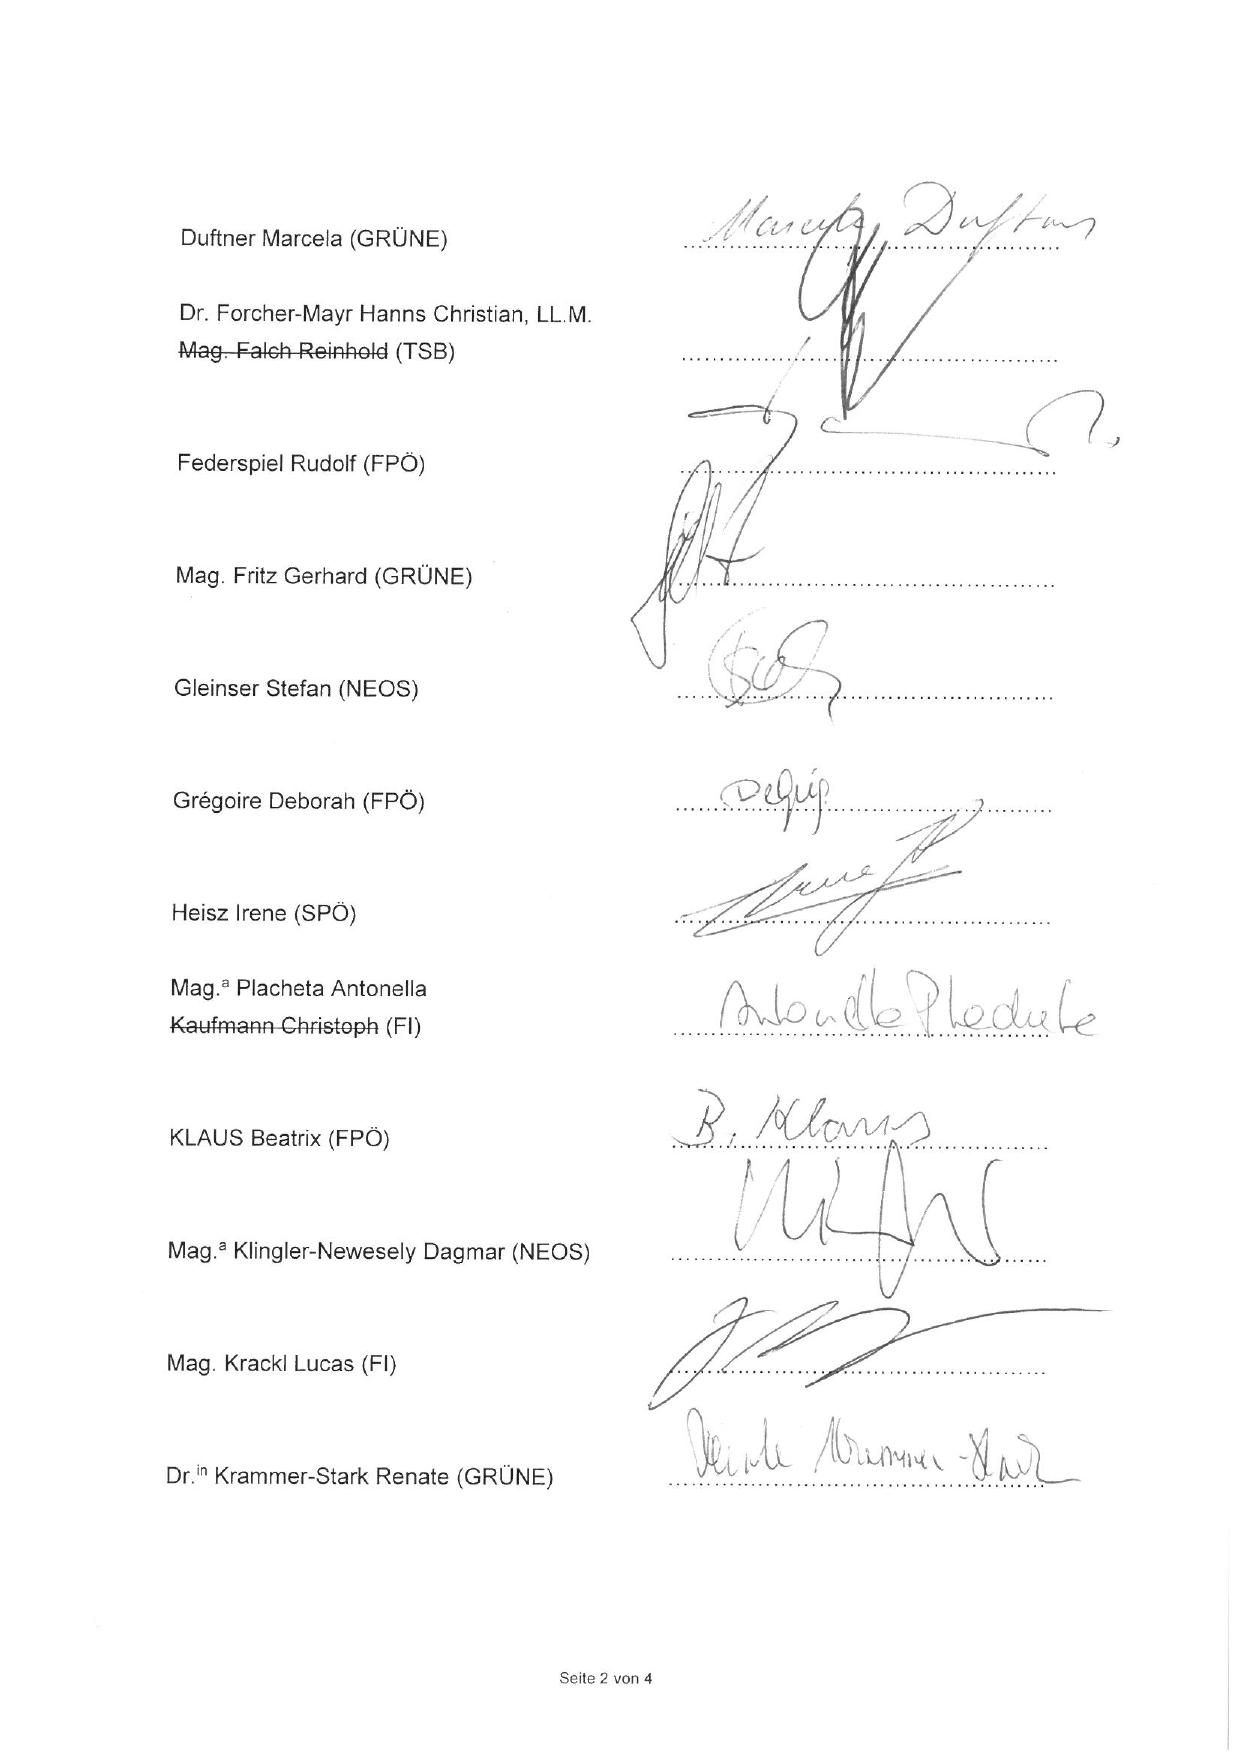 Duftner Marcela (GRÜNE) Marcela Duftner
Dr. Forcher-Mayr Hanns Christian, LL.M.
Mag. Falch Reinhold (TSB)
Federspiel Rudolf (FPÖ)
Mag. Fritz Gerhard (GRÜNE)
Gleinser Stefan (NEOS)
Grégoire Deborah (FPÖ)
Heisz Irene (SPÖ)
Mag.ª Placheta Antonella
Kaufmann Christoph (FI) Antonella Placheta
KLAUS Beatrix (FPÖ) B. Klaus
Mag.ª Klingler-Newesely Dagmar (NEOS)
Mag. Krackl Lucas (FI)
Dr.ⁱⁿ Krammer-Stark Renate (GRÜNE) Renate Krammer-Stark
Seite 2 von 4